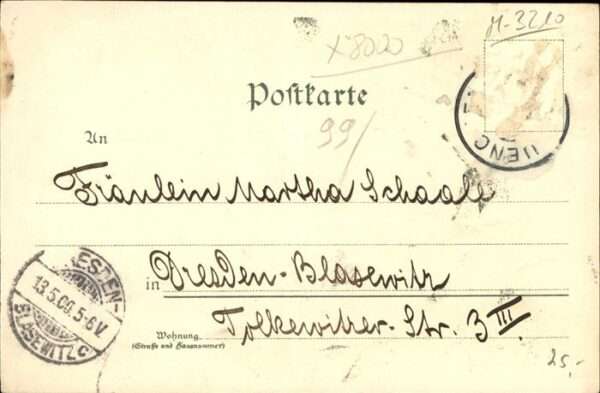 M-3210
X8020
Postkarte
99/
An
Fräulein Martha Schaale
in Dresden-Blasewitz
Tolkewitzer-Str. 3 III.
Wohnung
(Straße und Hausnummer)
DRESDEN-
13.5.00.5-6V
BLASEWITZ c
25,-